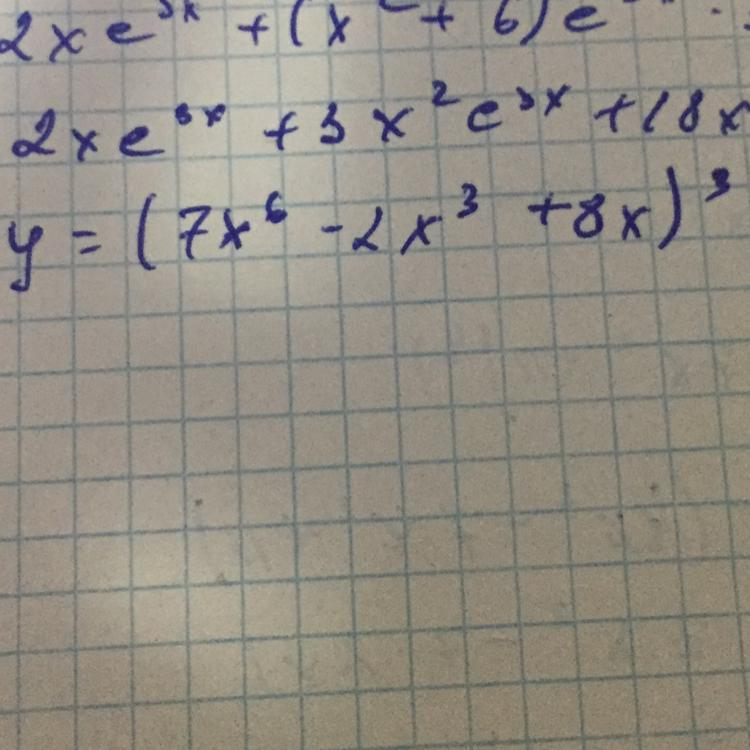 2xe³ˣ + (x² + 6)e
2xe³ˣ + 3x²e³ˣ + 18x
y = (7x⁶ - 2x³ + 8x)³